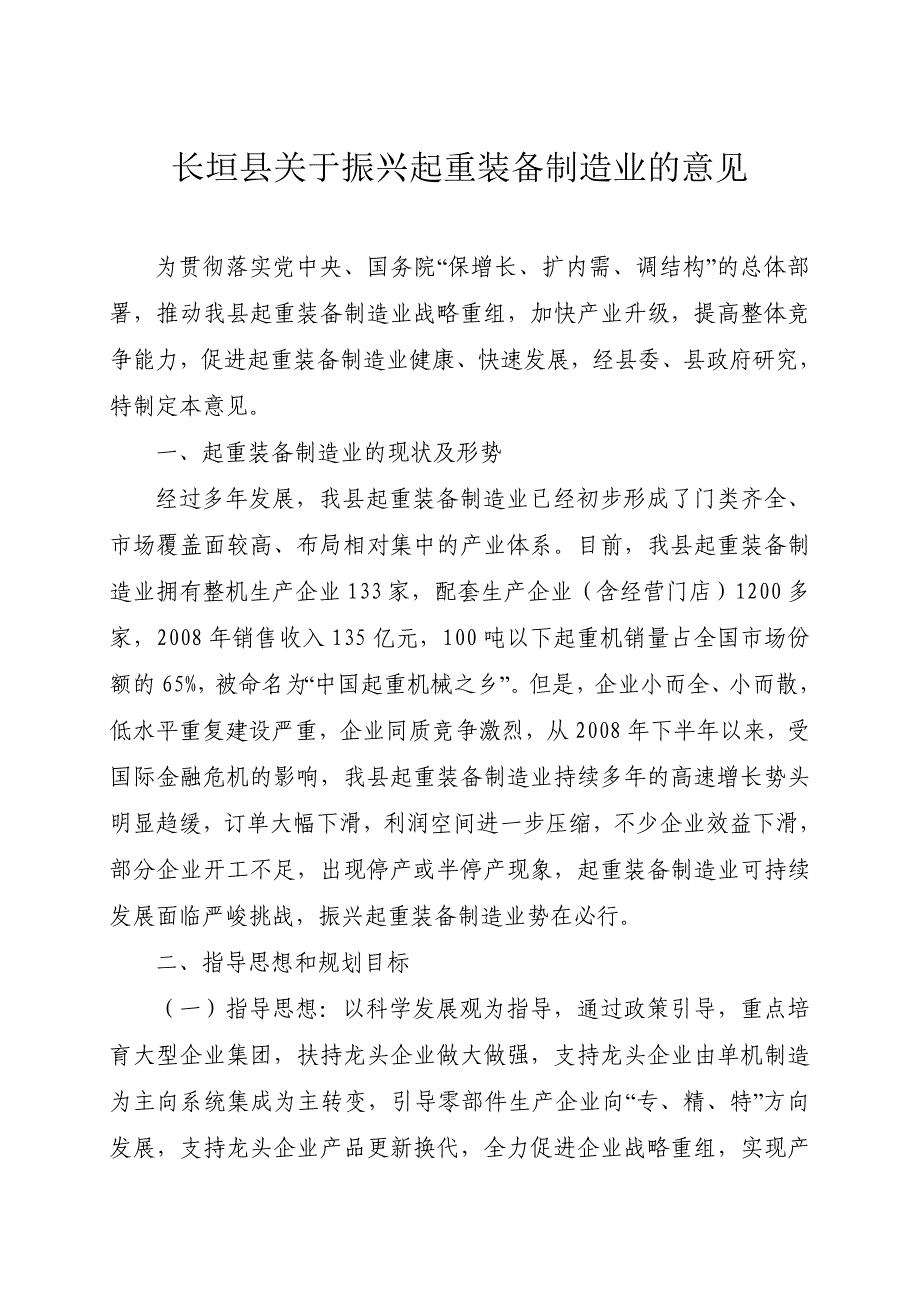 长垣县关于振兴起重装备制造业的意见
为贯彻落实党中央、国务院“保增长、扩内需、调结构”的总体部
署，推动我县起重装备制造业战略重组，加快产业升级，提高整体竞
争能力，促进起重装备制造业健康、快速发展，经县委、县政府研究，
特制定本意见。
一、起重装备制造业的现状及形势
经过多年发展，我县起重装备制造业已经初步形成了门类齐全、
市场覆盖面较高、布局相对集中的产业体系。目前，我县起重装备制
造业拥有整机生产企业 133 家，配套生产企业（含经营门店）1200 多
家，2008 年销售收入 135 亿元，100 吨以下起重机销量占全国市场份
额的 65%，被命名为“中国起重机械之乡”。但是，企业小而全、小而散，
低水平重复建设严重，企业同质竞争激烈，从 2008 年下半年以来，受
国际金融危机的影响，我县起重装备制造业持续多年的高速增长势头
明显趋缓，订单大幅下滑，利润空间进一步压缩，不少企业效益下滑，
部分企业开工不足，出现停产或半停产现象，起重装备制造业可持续
发展面临严峻挑战，振兴起重装备制造业势在必行。
二、指导思想和规划目标
（一）指导思想：以科学发展观为指导，通过政策引导，重点培
育大型企业集团，扶持龙头企业做大做强，支持龙头企业由单机制造
为主向系统集成为主转变，引导零部件生产企业向“专、精、特”方向
发展，支持龙头企业产品更新换代，全力促进企业战略重组，实现产